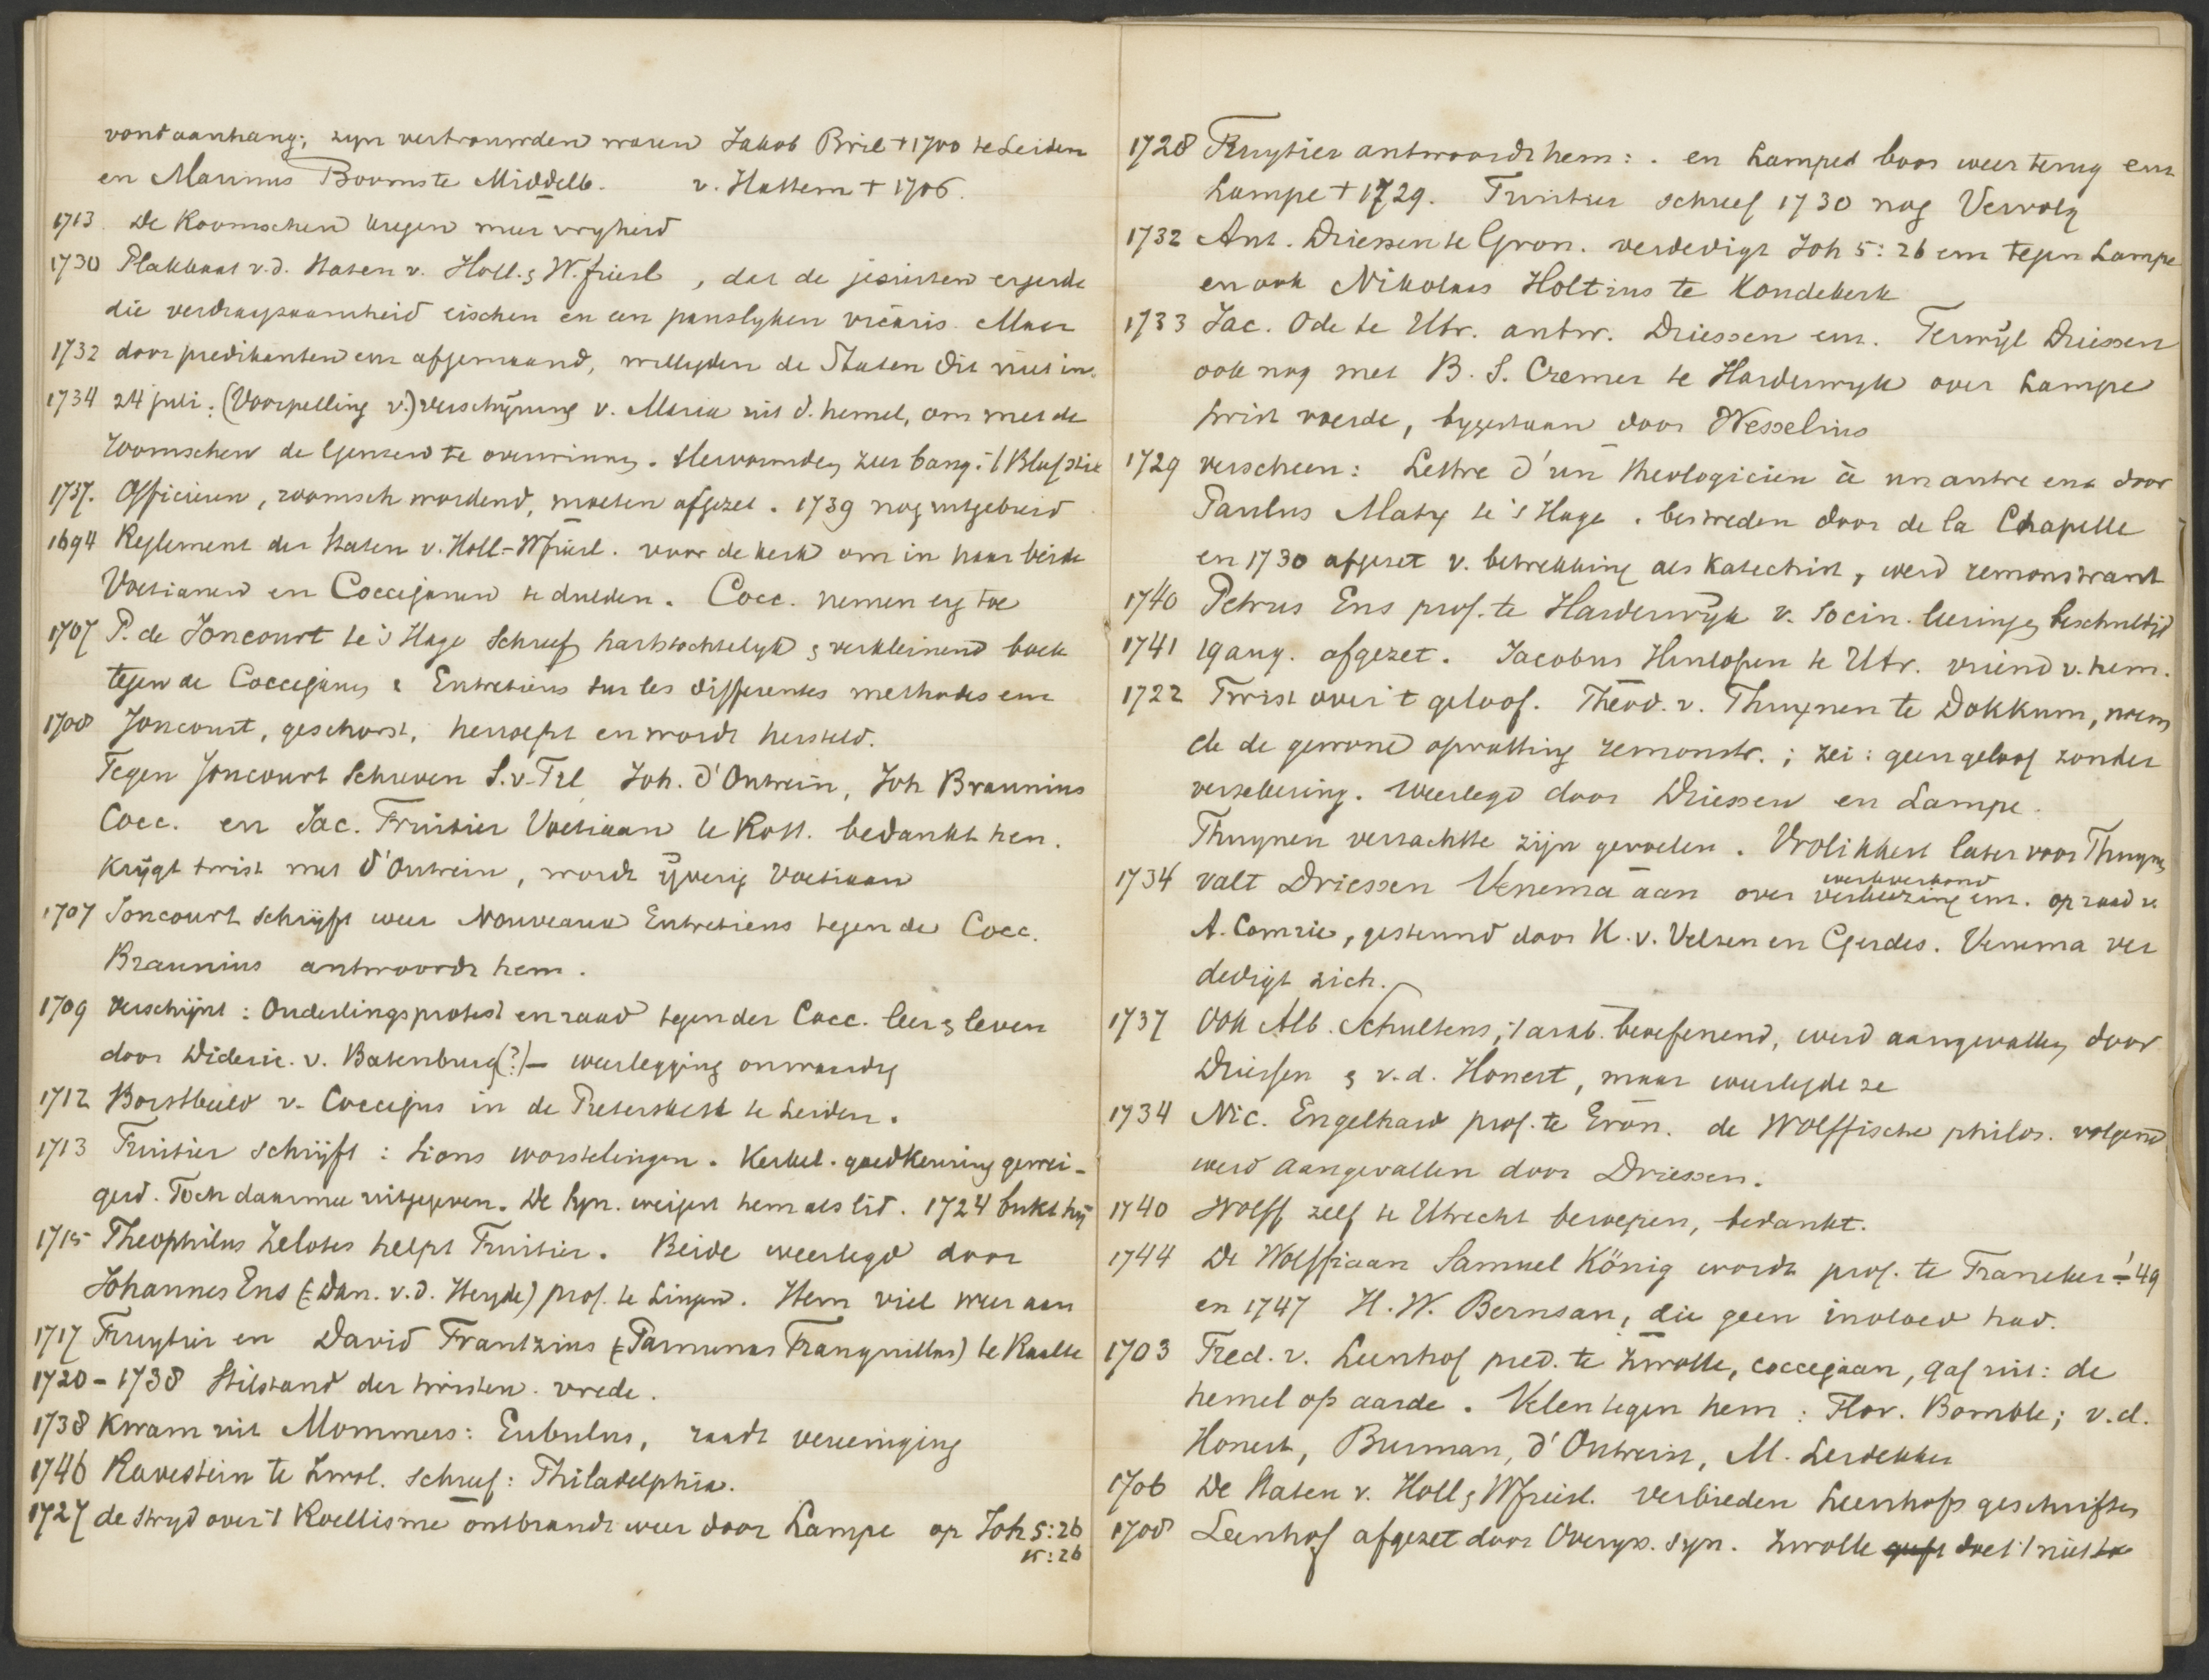 vond aanhang; zyn vertrouwden waren Jakob Bril + 1700 te Leiden
en Marinus Booms te Middelb. v. Hattem + 1706.
1713. De Roomschen kregen meer vryheid
1730 Plakkaat v.d. Staten v. Holl. & W.friesl, dat de jesuiten ergerde
die verdraagzaamheid eischen en een pauslyken vicaris. Maar
1732 door predikanten enz afgemaand, willigden de Staten dit niet in.
1734 24 juli: (Voorspelling v.) verschijning v. Maria uit d. hemel, om met de
roomschen de Geuzen te overwinnen. Hervormden zeer bang. 't Bleef stil
1737. Officieren, roomsch wordend, moeten afgezet. 1739 nog uitgebreid
1694 Reglement der Staten v. Holl-Wfriesl. voor de kerk om in haar beide
Voetianen en Coccejanen te dulden. Cocc. nemen erg toe
1707 P. de Joncourt te 's Hage schreef hartstochtelyk & verkleinend boek
tegen de Coccejanen: Entretiens sur les differentes methodes enz
1708 Joncourt, geschorst, herroept en wordt hersteld.
Tegen Joncourt schreven S. v. Til Joh. d'Outrein, Joh Braunius
Cocc. en Jac. Fruitier Voetiaan te Rott. bedankt hen.
Krijgt twist met d'Outrein, wordt ijverig Voetiaan
1707 Joncourt schrijft weer Nouveaux Entretiens tegen de Cocc.
Braunius antwoordt hem.
1709 verschijnt: Ouderlingsprotest en raad tegen der Cocc. leer & leven
door Dideric. v. Batenburg(?) – weerlegging onwaardig
1712 Borstbeeld v. Coccejus in de Pieterskerk te Leiden.
1713 Fruitier schrijft: Sions worstelingen. Kerkel. goedkeuring gewei-
gerd. Toch daarmee uitgegeven. De Syn. weigert hem als lid. 1724 bukt hij
1715 Theophilus Zelotes helpt Fruitier. Beide weerlegd door
Johannes Ens (= Dan. v.d. Heyde) prof. te Lingen. Hem viel weer aan
1717 Fruytier en David Frantzius (= Tranquillus) te Raalte
1720 – 1738 Stilstand der twisten. vrede.
1738 Kwam uit Mommers: Eubulus, raadt vereeniging
1746 Ravestein te Zwol. schreef: Philadelphia.
1727 de stryd over 't Roellisme ontbrandt weer door Lampe op Joh 5:26
15:26
1728 Fruytier antwoordt hem: . en Lampe boos weer terug enz
Lampe + 1729. Fruitier schreef 1730 nog Vervolg
1732 Ant. Driessen te Gron. verdedigt Joh 5:26 enz tegen Lampe
en ook Nikolaas Holtius te Koudekerk
1733 Jac. Ode te Utr. antw. Driessen enz. Terwijl Driessen
ook nog met B. S. Cremer te Harderwyk over Lampe
twist voerde, bygestaan door Wesselius
1729 verscheen: Lettre d'un theologicien à un autre enz door
Paulus Maty te 's Hage. bestreden door de la Chapelle
en 1730 afgezet v. betrekking als Katechist, werd remonstrant
1740 Petrus Ens prof. te Harderwijk v. Socin. leeringen beschuldigd
1741 19 aug. afgezet. Jacobus Hinlopen te Utr. vriend v. hem.
1722 Twist over 't geloof. Theod. v. Thuynen te Dokkum, noem
de de gewone opvatting remonstr.; zei: geen geloof zonder
verzekering. weerlegd door Driessen en Lampe.
Thuynen verzachtte zijn gevoelen. Vrolikkert later voor Thuynen
1734 valt Driessen Venema aan over werkverbond
verkiezing enz. op raad v.
A. Comrie, gesteund door K. v. Velsen en Gerdes. Venema ver
dedigt zich.
1737 Ook Alb. Schultens, 't arab. beoefenend, werd aangevallen door
Driessen & v.d. Honert, maar weerlegde ze
1734 Nic. Engelhard prof. te Gron. de Wolffische philos. volgend
werd aangevallen door Driessen.
1740 Wolff zelf te Utrecht beroepen, bedankt.
1744 De Wolffiaan Samuel König wordt prof. te Franeker – '49
en 1747 H. W. Bernsau, die geen invloed had.
1703 Fred. v. Leenhof pred. te Zwolle, coccejaan, gaf uit: de
hemel op aarde. Velen tegen hem: Flor. Bomble; v.d.
Honert, Burman, d'Outrein, M. Leidekker
1706 De Staten v. Holl & Wfriesl. verbieden Leenhofs geschriften
1708 Leenhof afgezet door Overys. Syn. Zwolle doet 't niet